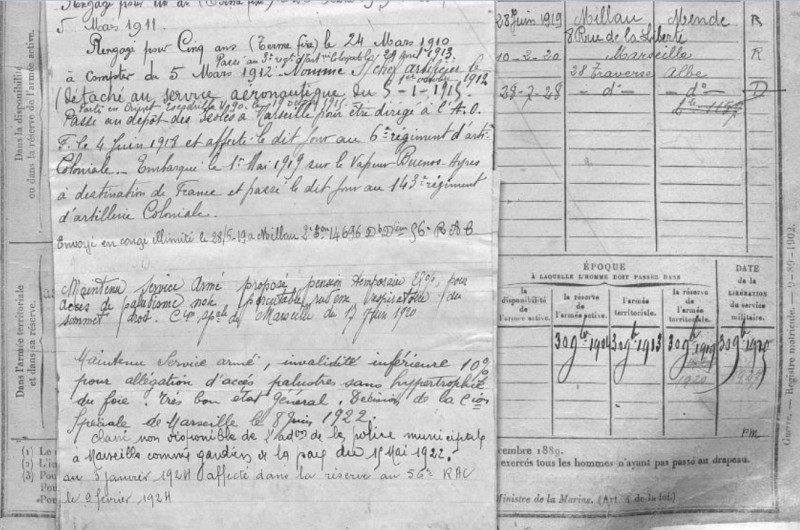 Rengagé pour un an (Terme fixe)
5 Mars 1911.
Rengagé pour Cinq ans (Terme fixe) le 24 Mars 1910
Passé au 3e regt d'art
à compter du 5 Mars 1912. Nommé S/chef artificier le
1er octobre 1912
Détaché au service aéronautique du 5-1-1915.
Passé au dépôt des isolés à Marseille pour être dirigé à l'A.O.
F. le 4 Juin 1918 et affecté le dit jour au 6e régiment d'arti
Coloniale. Embarqué le 1er Mai 1919 sur le Vapeur Buenos-Ayres
à destination de France et passé le dit jour au 143e régiment
d'artillerie Coloniale.
Envoyé en congé illimité le 28/5-19 à Millau 2e 14696 56e R A C
Maintenu service armé proposé pension temporaire pour
accès de paludisme
sommet droit. Cion spale de Marseille du 17 Juin 1920
Maintenu Service armé, invalidité inférieure 10%
pour allégation d'accès palustres sans hypertrophie
du foie. Très bon état General. Décision de la Cion
Spéciale de Marseille le 8 Juin 1922.
Classé non disponible de l'adon de la police municipale
à Marseille comme gardien de la paix du 15 Mai 1922.
au 5 janvier 1924 affecté dans la réserve au 56e RAC
le 9 février 1924
Dans la disponibilité
ou dans la réserve de l'armée active.
Dans l'armée territoriale
et dans sa réserve.
(1) Le
(2) L'in
(3) Pou
Pou
«Pou
28 Juin 1919 Millau Mende R
8 Rue de la Liberté
10-2-20 Marseille R
38 Traverse Albe
28-7-28 — do — — do — D
ÉPOQUE
À LAQUELLE L'HOMME DOIT PASSER DANS
DATE
de la
LIBÉRATION
du service
militaire.
la disponibilité
de l'armée active.
la réserve
de l'armée active.
l'armée
territoriale.
la réserve
de l'armée
territoriale.
30 9bre 1904 30 9bre 1913 30 9bre 1919
1920
cembre 1889.
exercés tous les hommes n'ayant pas passé au drapeau.
Ministre de la Marine. (Art 4 de la loi.)
Guerre. — Registre matricule. — 9-89-1902.